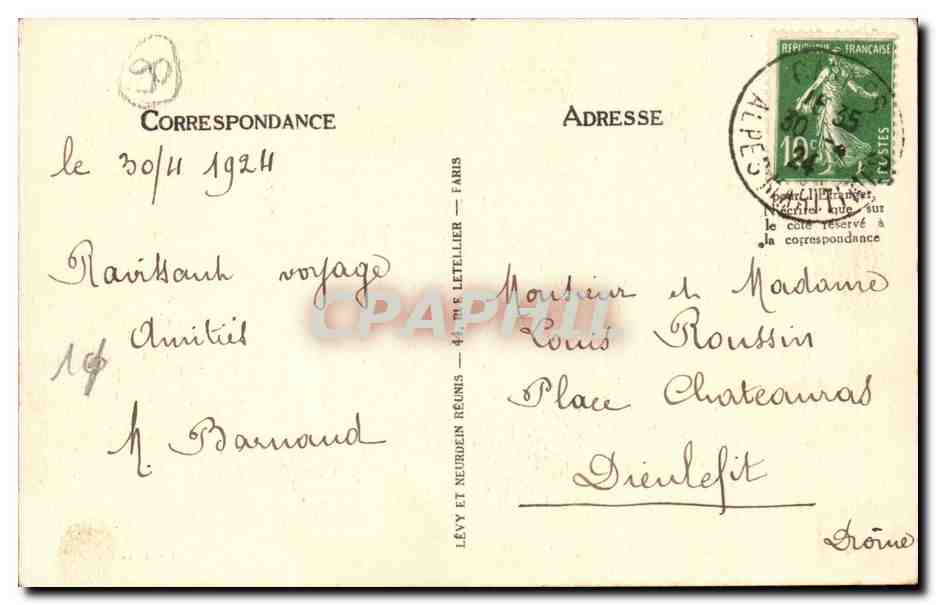 90
CORRESPONDANCE
le 30/4 1924
Ravissant voyage
Amitiés
M. Barnaud
LÉVY ET NEURDEIN RÉUNIS — 44, RUE LETELLIER — PARIS
ADRESSE
RÉPUBLIQUE FRANÇAISE
10 c
POSTES
ALPES MARITIMES
16 35
30 - 4
24
pour l'Étranger
N'écrire que sur
le côté réservé à
la correspondance
Monsieur et Madame
Louis Roussin
Place Chateauras
Dieulefit
Drôme
CPAPHIL